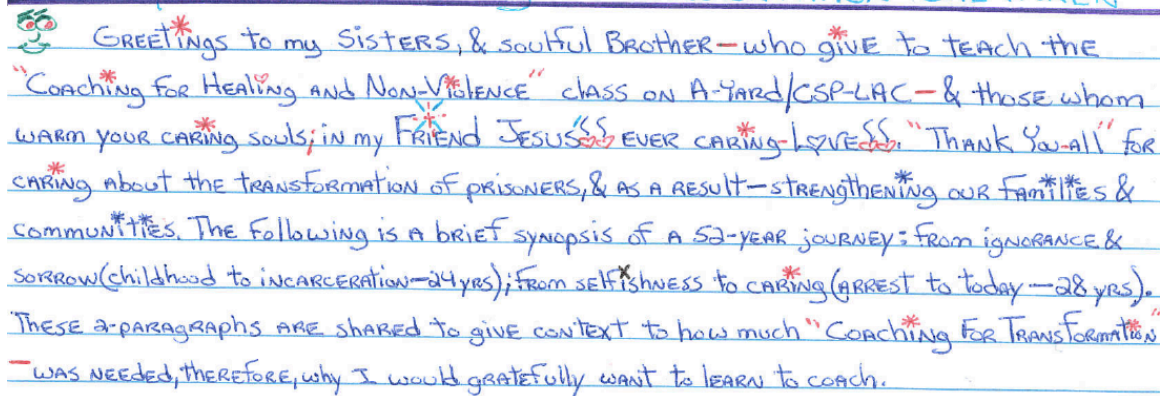 Greetings to my Sisters, & soulful Brother—who give to teach the
"Coaching For Healing and Non-Violence" class on A-Yard/CSP-LAC—& those whom
warm your caring souls; in my Friend Jesus's ever caring-Love. "Thank You-all" for
caring about the transformation of prisoners, & as a result—strengthening our families &
communities. The following is a brief synopsis of a 52-year journey: from ignorance &
sorrow (childhood to incarceration—24 yrs); from selfishness to caring (arrest to today—28 yrs).
These 2-paragraphs are shared to give context to how much "Coaching For Transformation"
—was needed, therefore, why I would gratefully want to learn to coach.